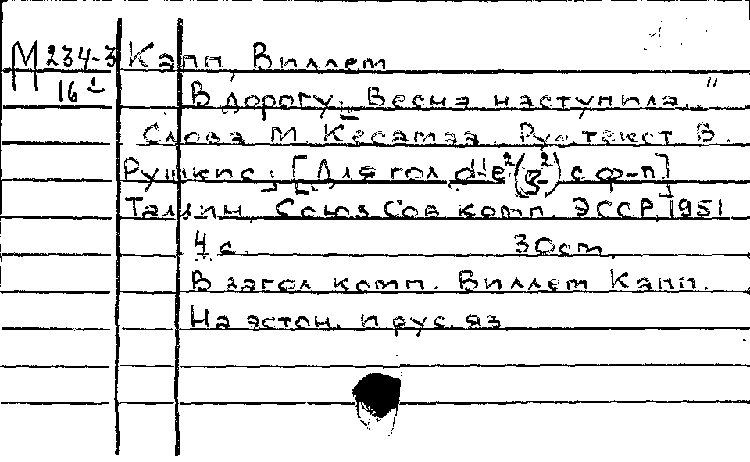 М 234-3 Капп, Виллем
16
В дорогу: "Весна наступила..."
Слова М. Кесамаа. Рус. текст В.
Рушкис; [Для гол. d-e² (g²) с ф-п]
Таллин, Союз Сов. комп. ЭССР, 1951
4 с. 30 ст.
В загол. комп. Виллем Капп.
На эстон. и рус. яз.